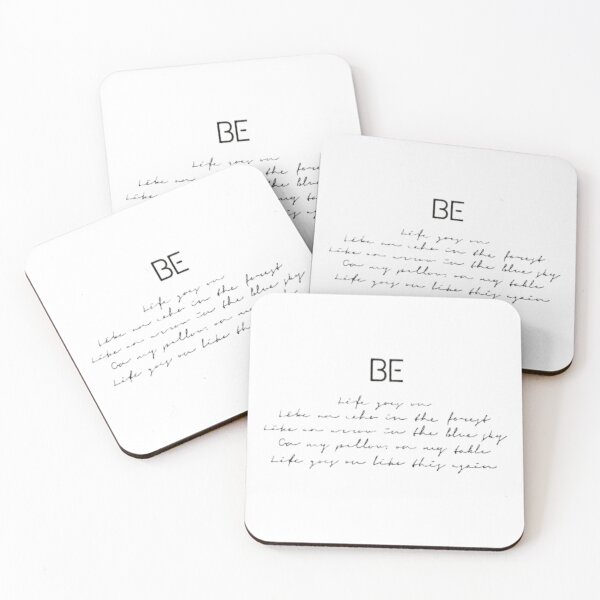 BE
Life goes on
Like an the
the blue
my table
again
BE
Life goes on
Like an echo in the forest
Like an arrow in the blue sky
On my pillow, on my table
Life goes on like this again
BE
Life goes on
Like an echo in the forest
Like an arrow in the blue sky
On my pillow, on my
Life goes on like this
BE
Life goes on
Like an echo in the forest
Like an arrow in the blue sky
On my pillow, on my table
Life goes on like this again